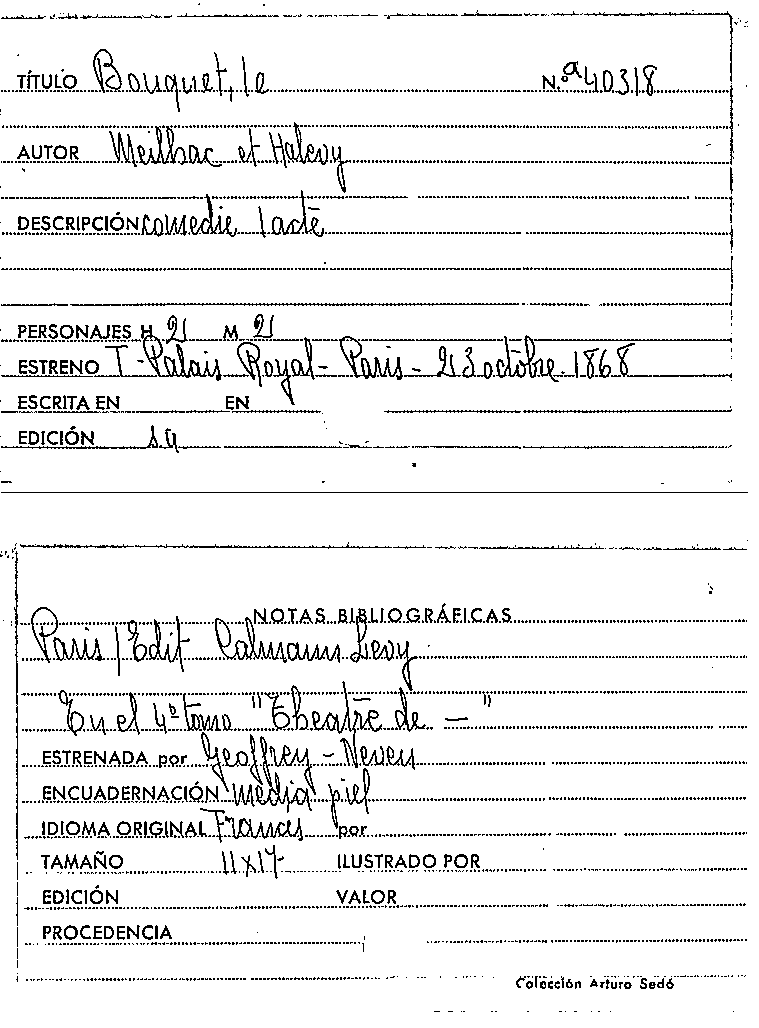 TÍTULO Bouquet, le N.º a 40318
AUTOR Meilhac et Halevy
DESCRIPCIÓN comedie 1 acte
PERSONAJES H 2 M 2
ESTRENO T. Palais Royal - Paris - 23 octobre 1868
ESCRITA EN EN
EDICIÓN s.a
NOTAS BIBLIOGRÁFICAS
Paris / Edit Calmann Levy
En el 4º tomo "Theatre de — "
ESTRENADA por Geoffrey - Neveu
ENCUADERNACIÓN media piel
IDIOMA ORIGINAL Francés por
TAMAÑO 11x17 ILUSTRADO POR
EDICIÓN VALOR
PROCEDENCIA
Colección Arturo Sedó